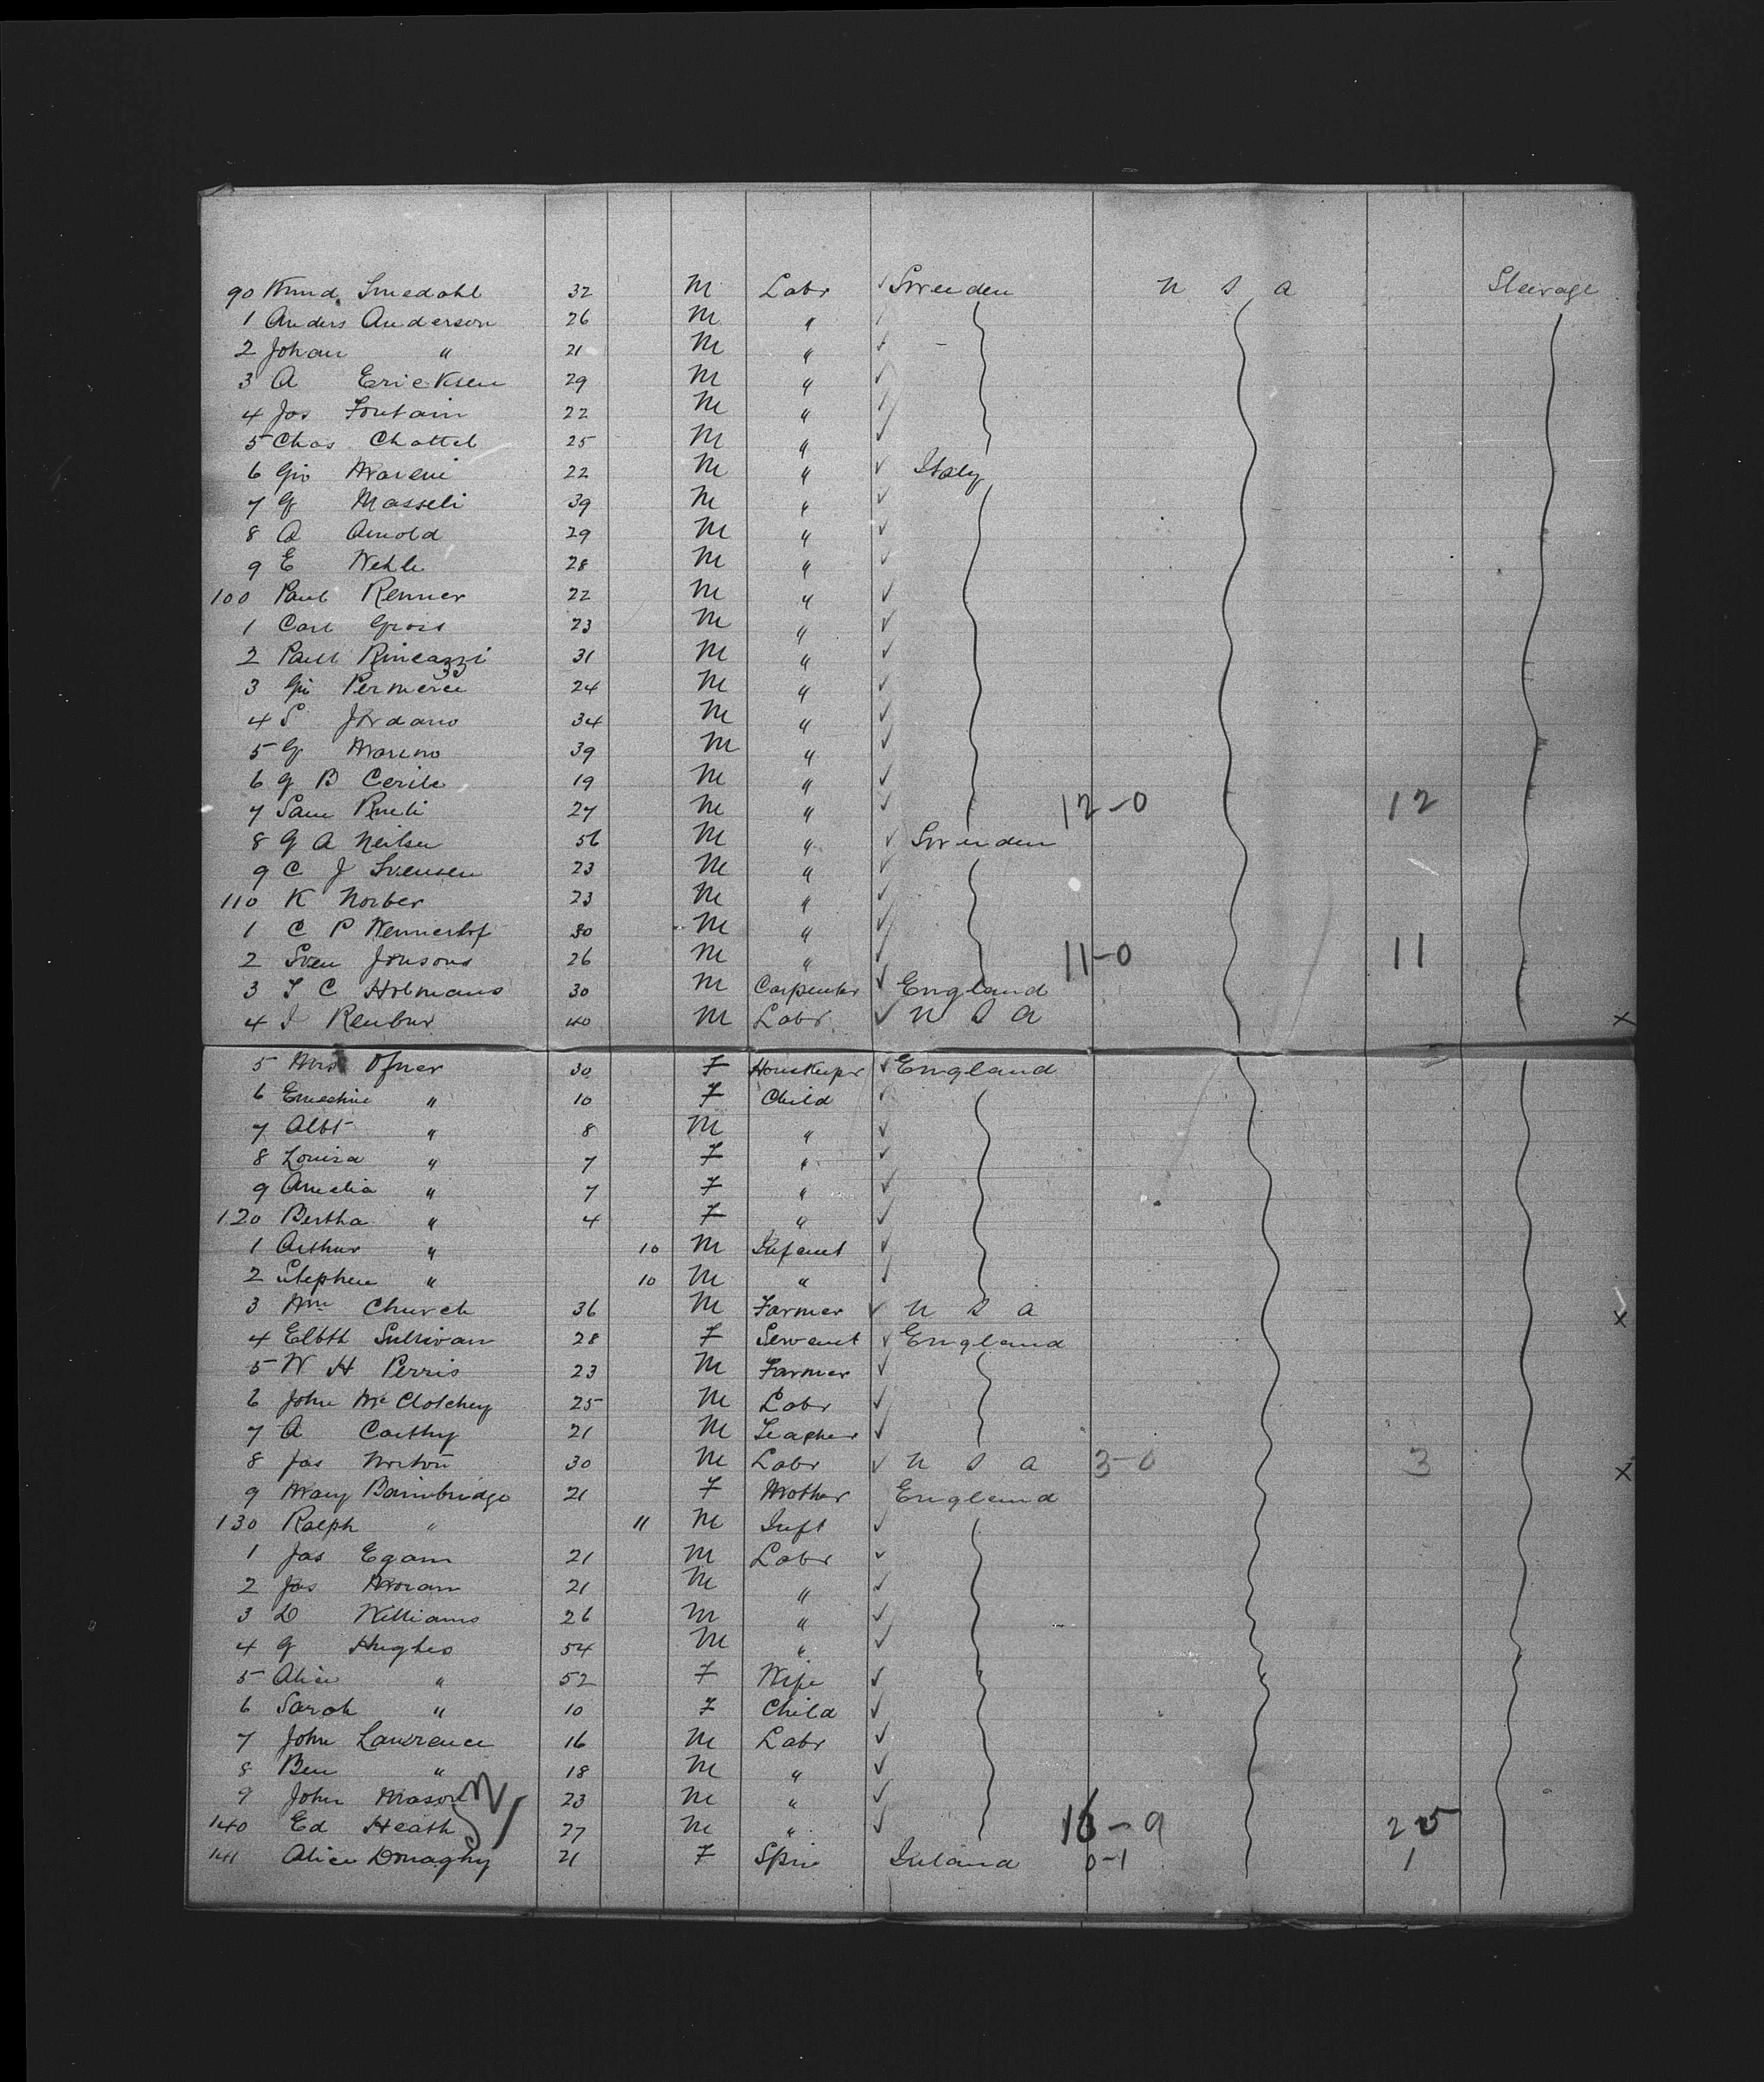 90 Knud Smedahl 32 M Labr ✓ Sweeden U S A Steerage
1 Anders Anderson 26 M " ✓
2 Johan " 21 M " ✓
3 A Ericksen 29 M " ✓
4 Jos Fontain 22 M " ✓
5 Chas Chattel 25 M " ✓
6 Gio Mareni 22 M " ✓ Italy
7 G Masseli 39 M " ✓
8 A Arnold 29 M " ✓
9 E Wehle 28 M " ✓
100 Paul Renner 22 M " ✓
1 Carl Gross 23 M " ✓
2 Paul Rineazzi 31 M " ✓
3 Gio 24 M " ✓
4 S Jordano 34 M " ✓
5 G Moreno 39 M " ✓
6 G B Cerile 19 M " ✓
7 Sam 27 M " ✓ 12-0 12
8 G A Neilsen 56 M " ✓ Sweeden
9 C J Svensen 23 M " ✓
110 K Norber 23 M " ✓
1 C P Wennerlof 30 M " ✓
2 Sven Jonsons 26 M " ✓ 11-0 11
3 T C Holmans 30 M Carpenter ✓ England
4 I Reubur 40 M Labr ✓ U S A x
5 Mrs Ofner 30 F HouseKeepr ✓ England
6 Ernestine " 10 F Child ✓
7 Albt " 8 M " ✓
8 Louisa " 7 F " ✓
9 Amelia " 7 F " ✓
120 Bertha " 4 F " ✓
1 Arthur " 10 M Infant ✓
2 Stephen " 10 M " ✓
3 Wm Church 36 M Farmer ✓ U S A x
4 Elbth Sullivan 28 F Servant ✓ England
5 W H Perris 23 M Farmer ✓
6 John McClotchey 25 M Labr ✓
7 A Carthy 21 M Teacher ✓
8 Jas Norton 30 M Labr ✓ U S A 3-0 3 x
9 Mary Bainbridge 21 F Mother England
130 Ralph " 11 M Inft ✓
1 Jas Egan 21 M Labr ✓
2 Jas Moran 21 M " ✓
3 D Williams 26 M " ✓
4 G Hughes 54 M " ✓
5 Alice " 52 F Wife ✓
6 Sarah " 10 F Child ✓
7 John Lawrence 16 M Labr ✓
8 Ben " 18 M " ✓
9 John Mason 23 M " ✓
140 Ed Heath 27 M " ✓ 16-9 25
141 Alice Donaghy 21 F Spin Ireland 0-1 1